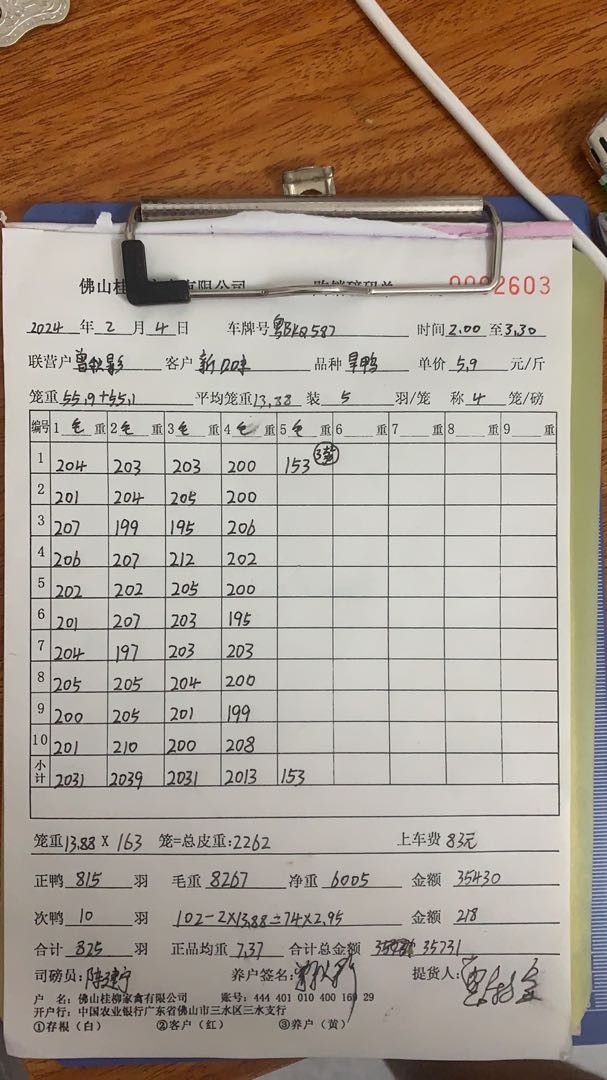 佛山桂 家禽有限公司 购销磅码单 0002603
2024 年 2 月 4 日 车牌号 粤BKQ587 时间 2.00 至 3.30
联营户 客户 新口味 品种 旱鸭 单价 5.9 元/斤
笼重 55.9+55.1 平均笼重 13.88 装 5 羽/笼 称 4 笼/磅
编号 1 毛 重 2 毛 重 3 毛 重 4 毛 重 5 毛 重 6 重 7 重 8 重 9 重
1 204 203 203 200 153
2 201 204 205 200
3 207 199 195 206
4 206 207 212 202
5 202 202 205 200
6 201 207 203 195
7 204 197 203 203
8 205 205 204 200
9 200 205 201 199
10 201 210 200 208
小计 2031 2039 2031 2013 153
笼重 13.88 X 163 笼=总皮重: 2262 上车费 83元
正鸭 815 羽 毛重 8267 净重 6005 金额 35430
次鸭 10 羽 102-2X13.88=74X2.95 金额 218
合计 825 羽 正品均重 7.37 合计总金额 35731
司磅员: 养户签名: 提货人:
户 名: 佛山桂柳家禽有限公司 账号: 444 401 010 400 160 29
开户行: 中国农业银行广东省佛山市三水区三水支行
①存根（白） ②客户（红） ③养户（黄）